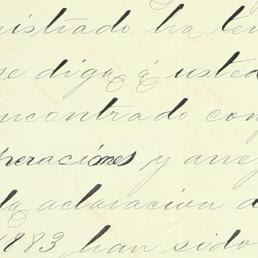 istrado ha ten
se diga á usted
ncontrado con
peraciones y ane
la aclaracion d
1883 han sido